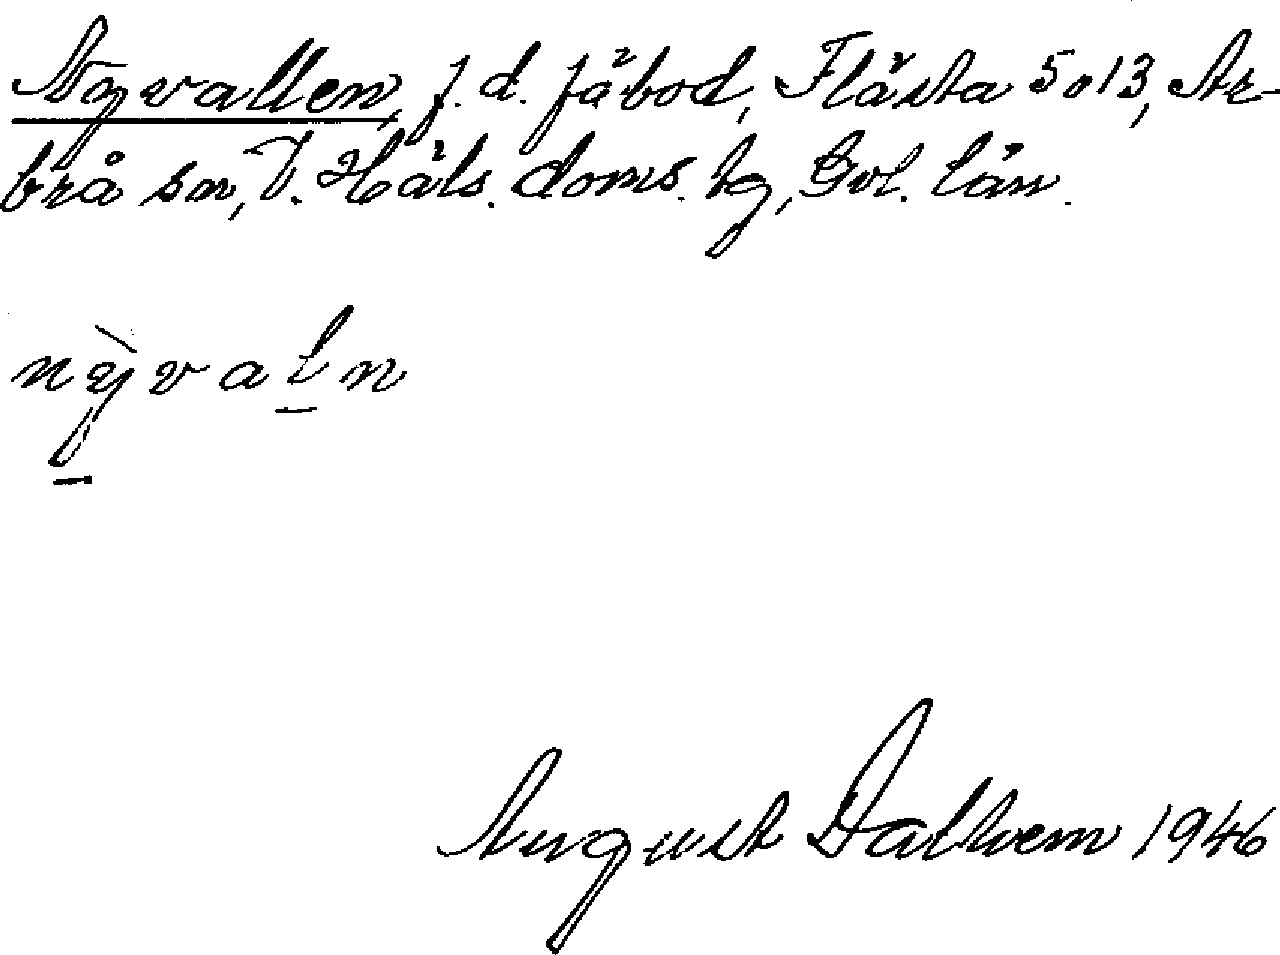 Nyvallen, f. d. fäbod, Flästa 5 o 13, Ar-
brå sn, V. Häls. doms. hg, Gvl. län.
nỳvaln
August Dalhem 1946